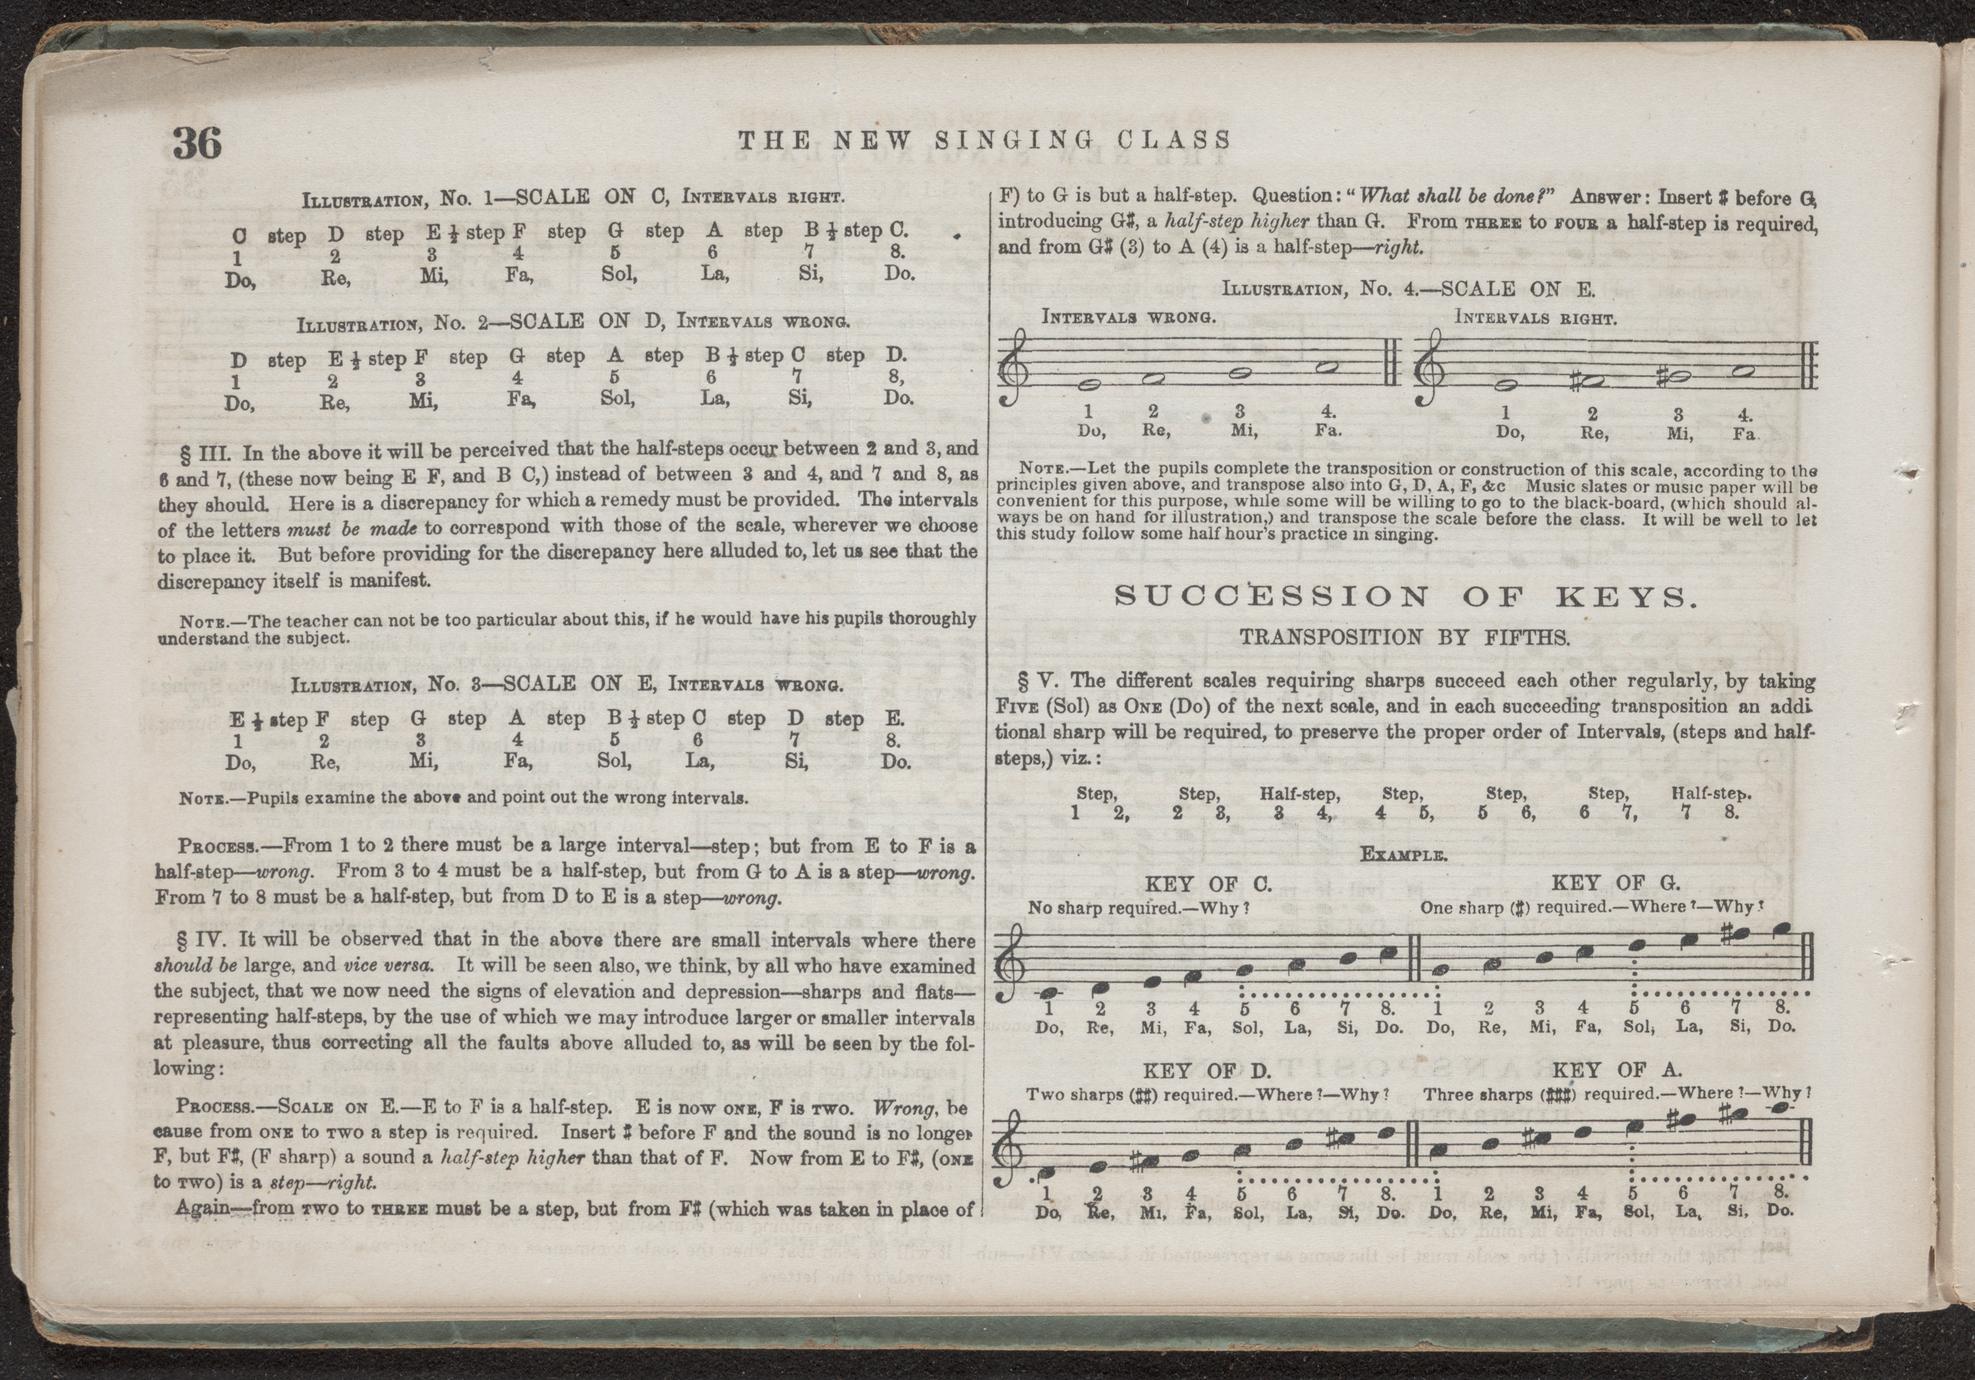 36
THE NEW SINGING CLASS
ILLUSTRATION, NO. 1—SCALE ON C, INTERVALS RIGHT.
C step D step E ½ step F step G step A step B ½ step C.
1 2 3 4 5 6 7 8.
Do, Re, Mi, Fa, Sol, La, Si, Do.
ILLUSTRATION, NO. 2—SCALE ON D, INTERVALS WRONG.
D step E ½ step F step G step A step B ½ step C step D.
1 2 3 4 5 6 7 8,
Do, Re, Mi, Fa, Sol, La, Si, Do.
§ III. In the above it will be perceived that the half-steps occur between 2 and 3, and
6 and 7, (these now being E F, and B C,) instead of between 3 and 4, and 7 and 8, as
they should. Here is a discrepancy for which a remedy must be provided. The intervals
of the letters must be made to correspond with those of the scale, wherever we choose
to place it. But before providing for the discrepancy here alluded to, let us see that the
discrepancy itself is manifest.
NOTE.—The teacher can not be too particular about this, if he would have his pupils thoroughly
understand the subject.
ILLUSTRATION, NO. 3—SCALE ON E, INTERVALS WRONG.
E ½ step F step G step A step B ½ step C step D step E.
1 2 3 4 5 6 7 8.
Do, Re, Mi, Fa, Sol, La, Si, Do.
NOTE.—Pupils examine the above and point out the wrong intervals.
PROCESS.—From 1 to 2 there must be a large interval—step; but from E to F is a
half-step—wrong. From 3 to 4 must be a half-step, but from G to A is a step—wrong.
From 7 to 8 must be a half-step, but from D to E is a step—wrong.
§ IV. It will be observed that in the above there are small intervals where there
should be large, and vice versa. It will be seen also, we think, by all who have examined
the subject, that we now need the signs of elevation and depression—sharps and flats—
representing half-steps, by the use of which we may introduce larger or smaller intervals
at pleasure, thus correcting all the faults above alluded to, as will be seen by the fol-
lowing:
PROCESS.—SCALE ON E.—E to F is a half-step. E is now ONE, F is TWO. Wrong, be
cause from ONE to TWO a step is required. Insert ♯ before F and the sound is no longer
F, but F♯, (F sharp) a sound a half-step higher than that of F. Now from E to F♯, (ONE
to TWO) is a step—right.
Again—from TWO to THREE must be a step, but from F♯ (which was taken in place of
F) to G is but a half-step. Question: "What shall be done?" Answer: Insert ♯ before G,
introducing G♯, a half-step higher than G. From THREE to FOUR a half-step is required,
and from G♯ (3) to A (4) is a half-step—right.
ILLUSTRATION, NO. 4.—SCALE ON E.
INTERVALS WRONG. INTERVALS RIGHT.
1 2 3 4. 1 2 3 4.
Do, Re, Mi, Fa. Do, Re, Mi, Fa.
NOTE.—Let the pupils complete the transposition or construction of this scale, according to the
principles given above, and transpose also into G, D, A, F, &c Music slates or music paper will be
convenient for this purpose, while some will be willing to go to the black-board, (which should al-
ways be on hand for illustration,) and transpose the scale before the class. It will be well to let
this study follow some half hour's practice in singing.
SUCCESSION OF KEYS.
TRANSPOSITION BY FIFTHS.
§ V. The different scales requiring sharps succeed each other regularly, by taking
FIVE (Sol) as ONE (Do) of the next scale, and in each succeeding transposition an addi
tional sharp will be required, to preserve the proper order of Intervals, (steps and half-
steps,) viz.:
Step, Step, Half-step, Step, Step, Step, Half-step.
1 2, 2 3, 3 4, 4 5, 5 6, 6 7, 7 8.
EXAMPLE.
KEY OF C. KEY OF G.
No sharp required.—Why? One sharp (♯) required.—Where?—Why?
1 2 3 4 5 6 7 8. 1 2 3 4 5 6 7 8.
Do, Re, Mi, Fa, Sol, La, Si, Do. Do, Re, Mi, Fa, Sol, La, Si, Do.
KEY OF D. KEY OF A.
Two sharps (♯♯) required.—Where?—Why? Three sharps (♯♯♯) required.—Where?—Why?
1 2 3 4 5 6 7 8. 1 2 3 4 5 6 7 8.
Do, Re, Mi, Fa, Sol, La, Si, Do. Do, Re, Mi, Fa, Sol, La, Si, Do.